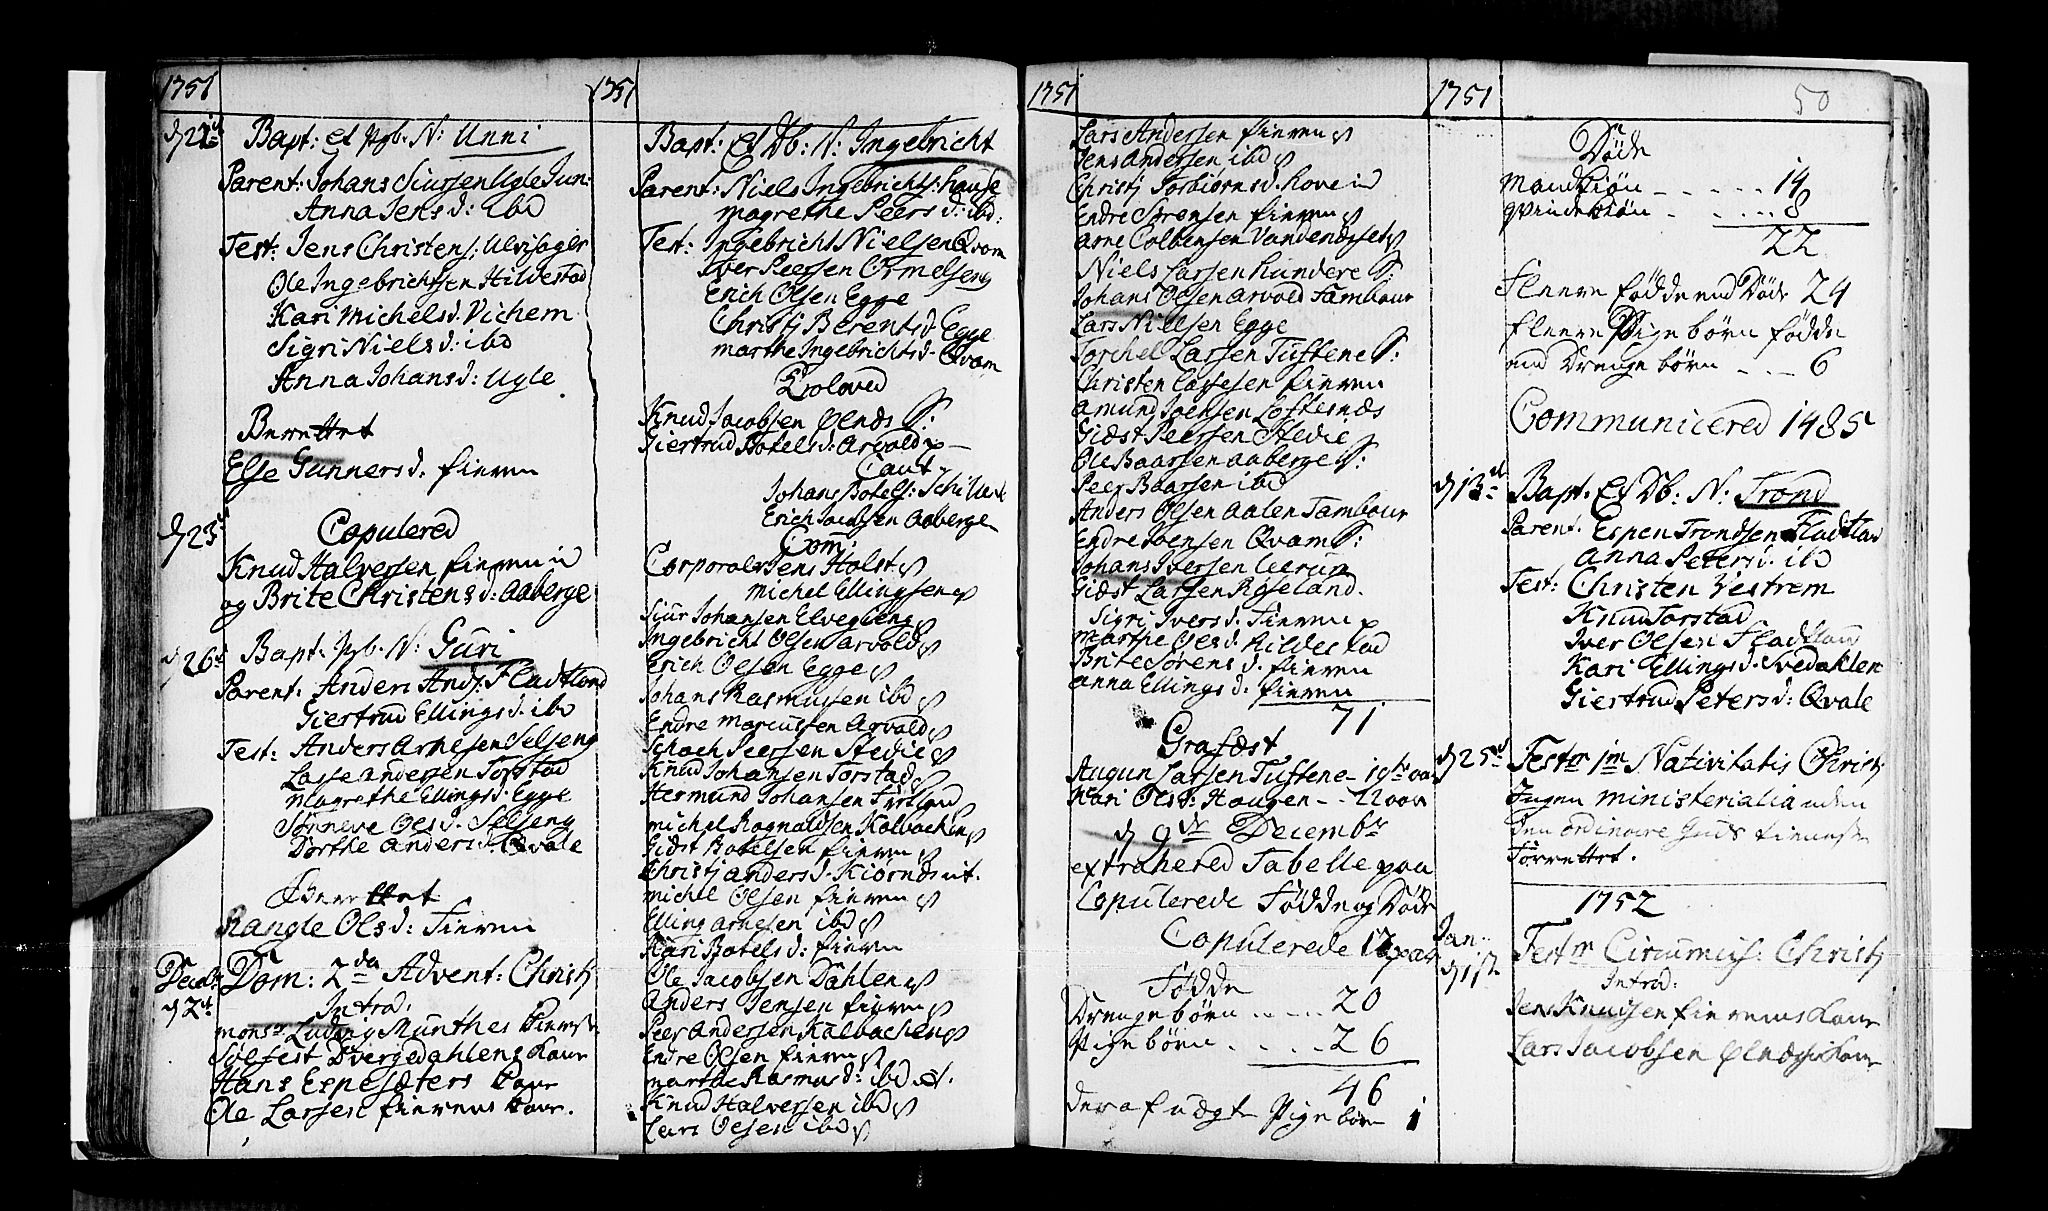 1751
d 21de
Bapt: et Pgb. N: Unni
Parent: Johans Siursen Ugle Jun:
Anna Jens d: ibd
Test: Jens Christens: Ulvisager
Ole Ingebrichtsen Hildestad
Kari Michels d. Vichem
Sigri Niels d: ibd
Anna Johans d: Ugle
Berettet
Else Gunners d. Fieren
d 23d
Copulered
Knud Halversen Fieren
og Brite Christens d: Aaberge
d 26d
Bapt. Pgb. N: Guri
Parent. Anders And: Fladtland
Giertrud Ellings d. ibd
Test: Anders Arnesen Selseng
Lasse Andersen Torstad
Magrethe Ellings d. Egge
Sÿrneve Ols d. Selseng
Dorthe Anders d. Qvale
Berettet
Rangle Ols d: Fieren
Decbr
d 2d
Dom: 2da Advent: Christj
Introd.
Monsr Ludvig Munthes
Solfest Dvergedahlens Kone
Hans Espesæters Kone
Ole Larsen Fierens Kone.
1751
Bapt: Et Db: N: Ingebricht
Parent: Niels Ingebrichts: Hause
Magrethe Peers d: ibd:
Test: Ingebricht Nielsen Qvam
Iver Peersen Ormelseng
Erich Olsen Egge
Christj Berents d. Egge
Marthe Ingebrichts d. Qvam
Troloved
Knud Jacobsen Ølnæs S:
Giertrud Botels d: Arvold
Caut
Johans Botels:
Erich Jacobsen Aaberge
Com:
Corporal Jens Holst
Michel Ellingsen
Siur Johansen Elvegieng
Ingebricht Olsen Arvold
Erich Olsen Egge
Johans Rasmussen ibd
Endre Marcussen Arvold
Schach Peersen Stedie
Knud Johansen Torstad
Hermund Johansen
Michel Ragnaldsen Kalbachen
Gidst Botelsen Fieren
Christj Anders d. Kiørnæs
Michel Olsen Fieren
Elling Arnesen ibd
Kari Botels d: Fieren
Ole Jacobsen Dahlen
Anders Jensen Fieren
Peer Andersen Kalbachen
Endre Olsen Fieren
Marthe Rasmus d: ibd
Knud Halversen ibd
Lars Olsen ibd
1751
Lars Andersen Fieren
Jens Andersen ibd
Christj Torbiørns d. Hove
Endre Sørensen Fieren
Arne Colbensen Vandendset
Niels Larsen Hundere S:
Johans Olsen Arvold Tambour
Lars Nielsen Egge
Torchel Larsen Tuftene S:
Christen Lassesen Fieren
Amund Joensen Loftesnæs
Gidst Peersen Stedie
Ole Baarsen Aaberge S:
Peer Baarsen ibd
Anders Olsen Aalen Tambour
Endre Joensen Qvam S:
Johans Iversen Lerum
Gidst Larsen Røseland.
Sigri Ivers d. Fieren
Marthe Ols d. Hildestad
Brite Sørens d. Fieren
Anna Ellings d. Fieren
71
Grafæst
Augun Larsen Tuftene
Kari Ols d: Haugen
d 9de Decembr
extrahered Tabelle paa
Copulerede Fødde og Døde
Copulerede 17 par
Fødde
Drengebørn ..... 20
Pigebørn ..... 26
46
deraf uægte Pigebørn 1
1751
50
Døde
Mandkiøn ..... 14
Qvindekiøn ..... 8
22
Fleere fødde end Døde 24
Fleere Pigebørn fødde
end Drengebørn ... 6
Communicered 1485
d 13de
Bapt. Et Db: N: Trond
Parent. Espen Trondsen Fladtland
Anna Peters d. ibd
Test: Christen Vestrem
Knud Torstad
Iver Olsen Fladtland
Kari Ellings d. Svedahlen
Giertrud Peters d: Qvale
d 25de
Festm 1m Nativitatis Christj
Ingen ministerialia uden
den ordinaire Guds tieneste
forrettet.
1752
Jan:
d 1ste
Festm Circumcis: Christj
Introd:
Jens Knudsen Fierens Kone
Lars Jacobsen Ølnæs Kone